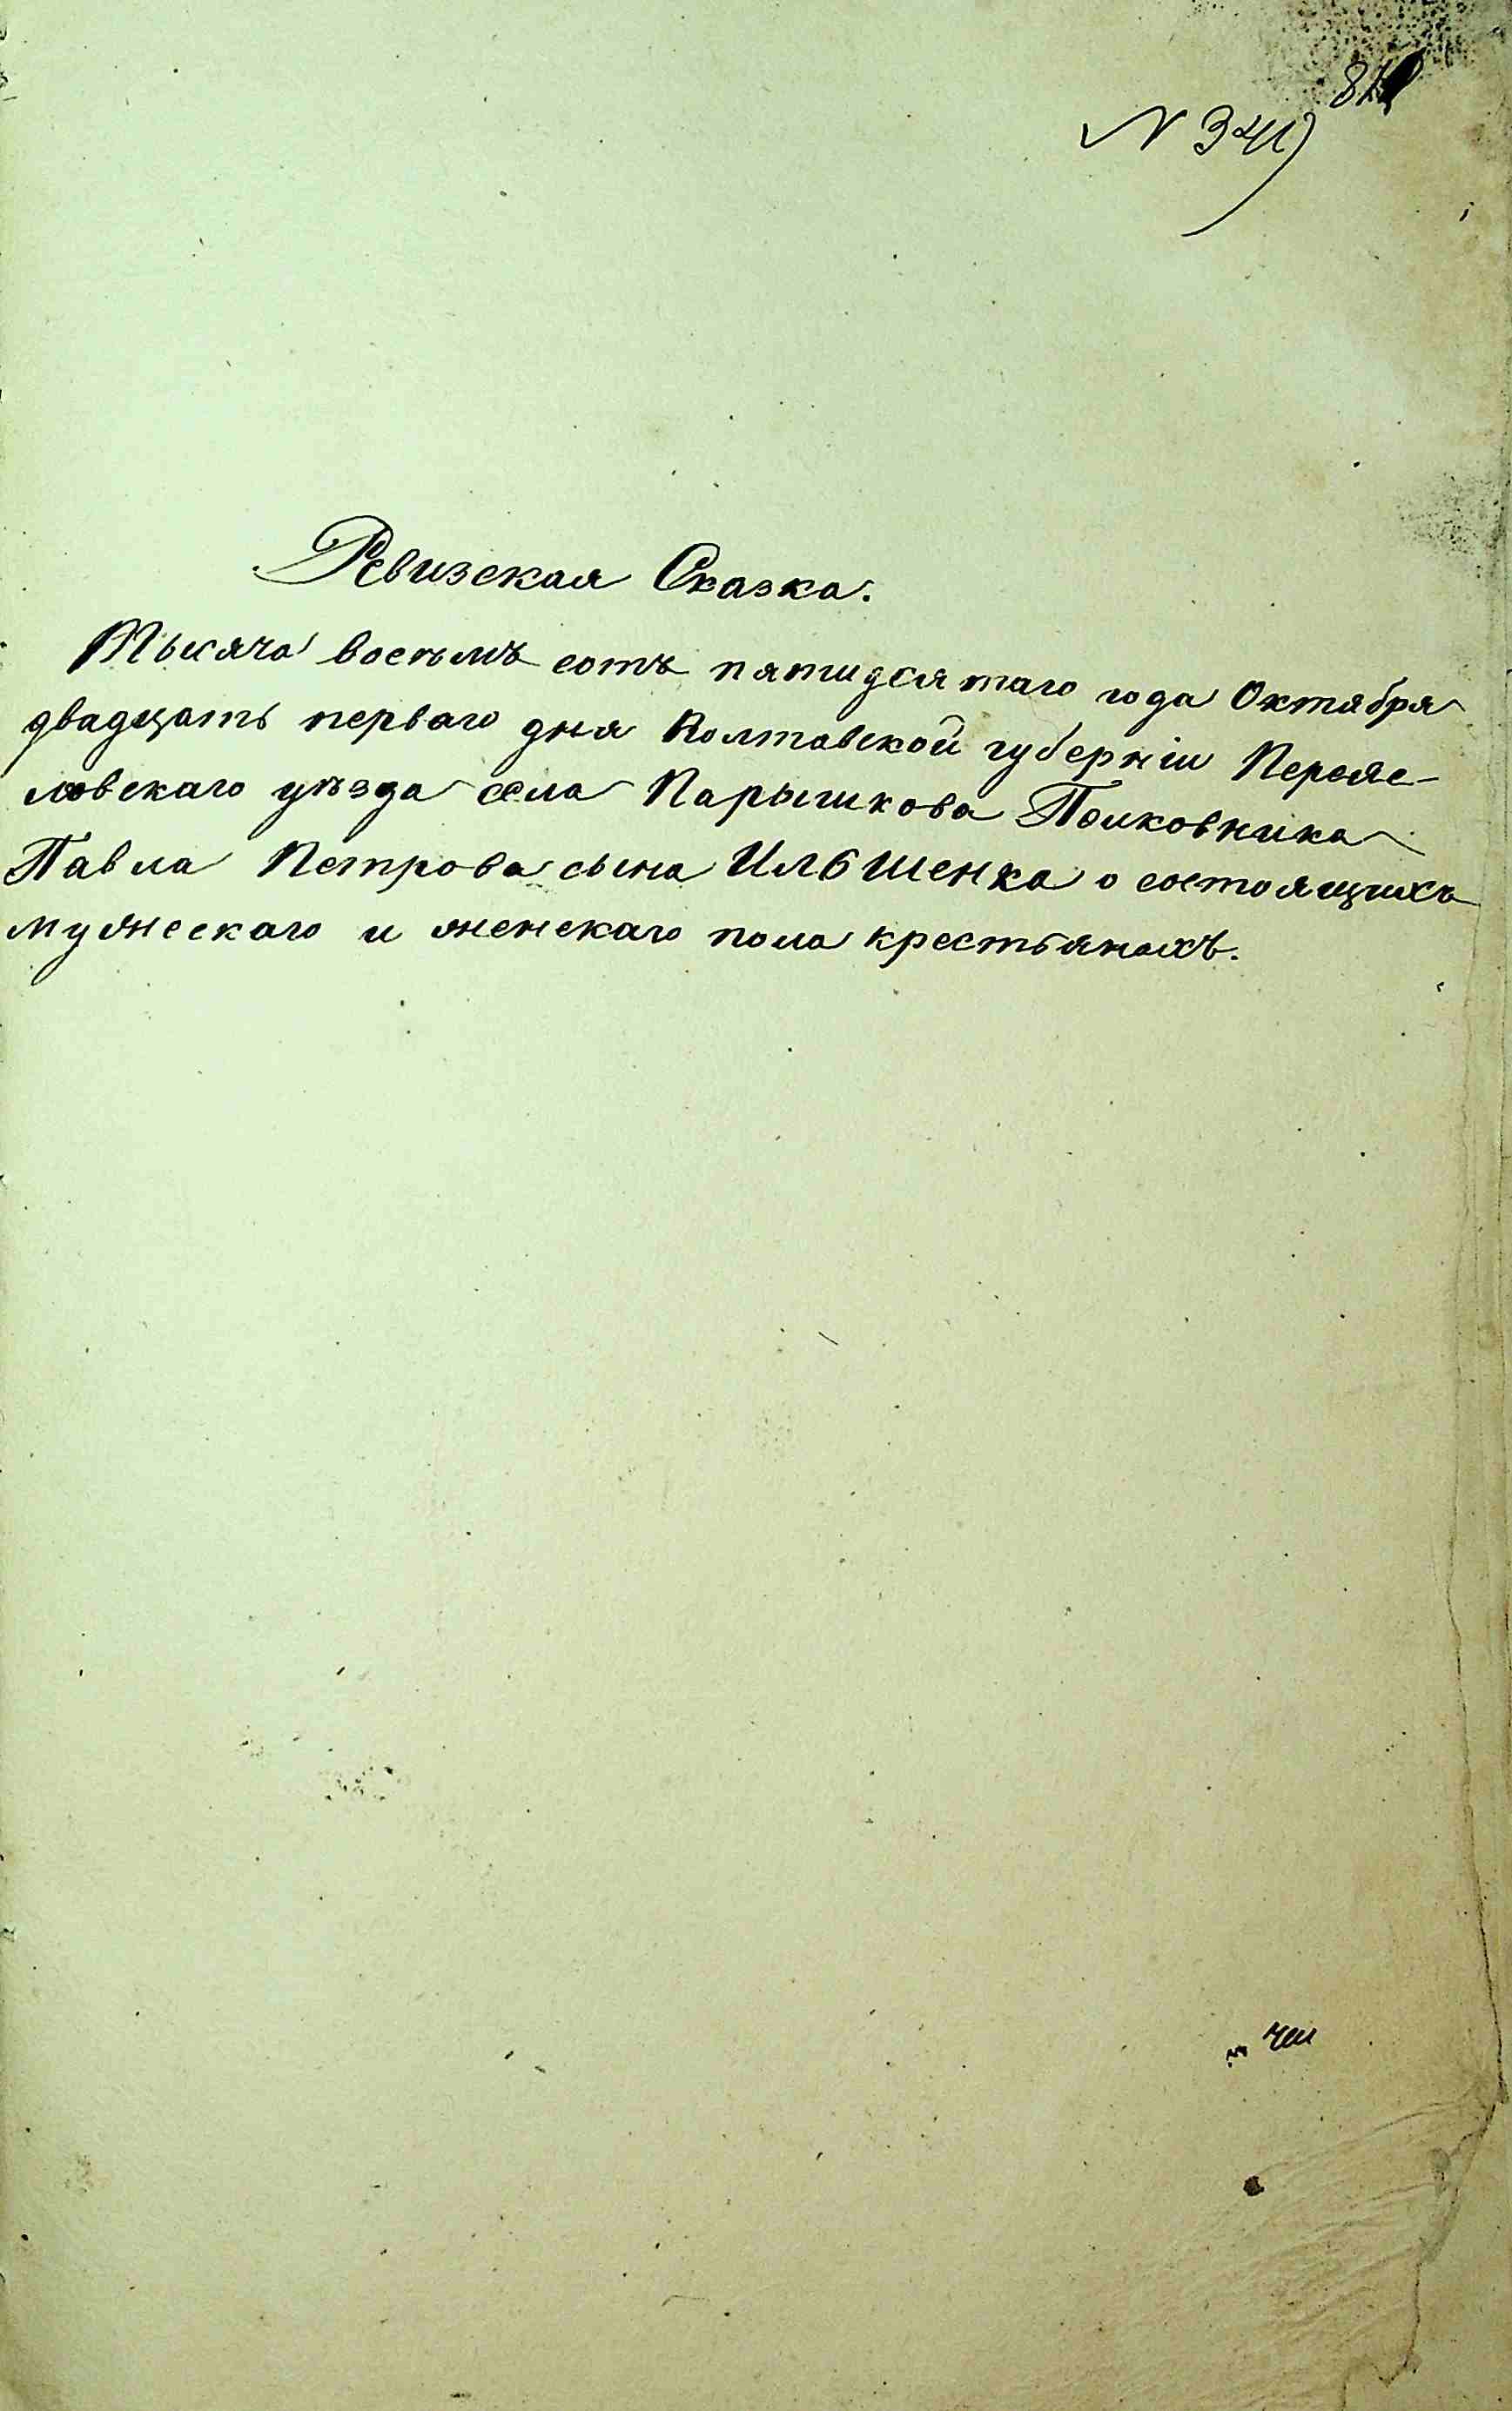 N 341
Ревизская Сказка.
Тысяча восемъ сотъ пятидесятаго года Октября
двадцать перваго дня Полтавской губерніи Переяс-
ловскаго уѣзда села Парышкова Полковника
Павла Петрова сына Ильяшенка о состоящихъ
мужескаго и женскаго пола крестьянахъ.